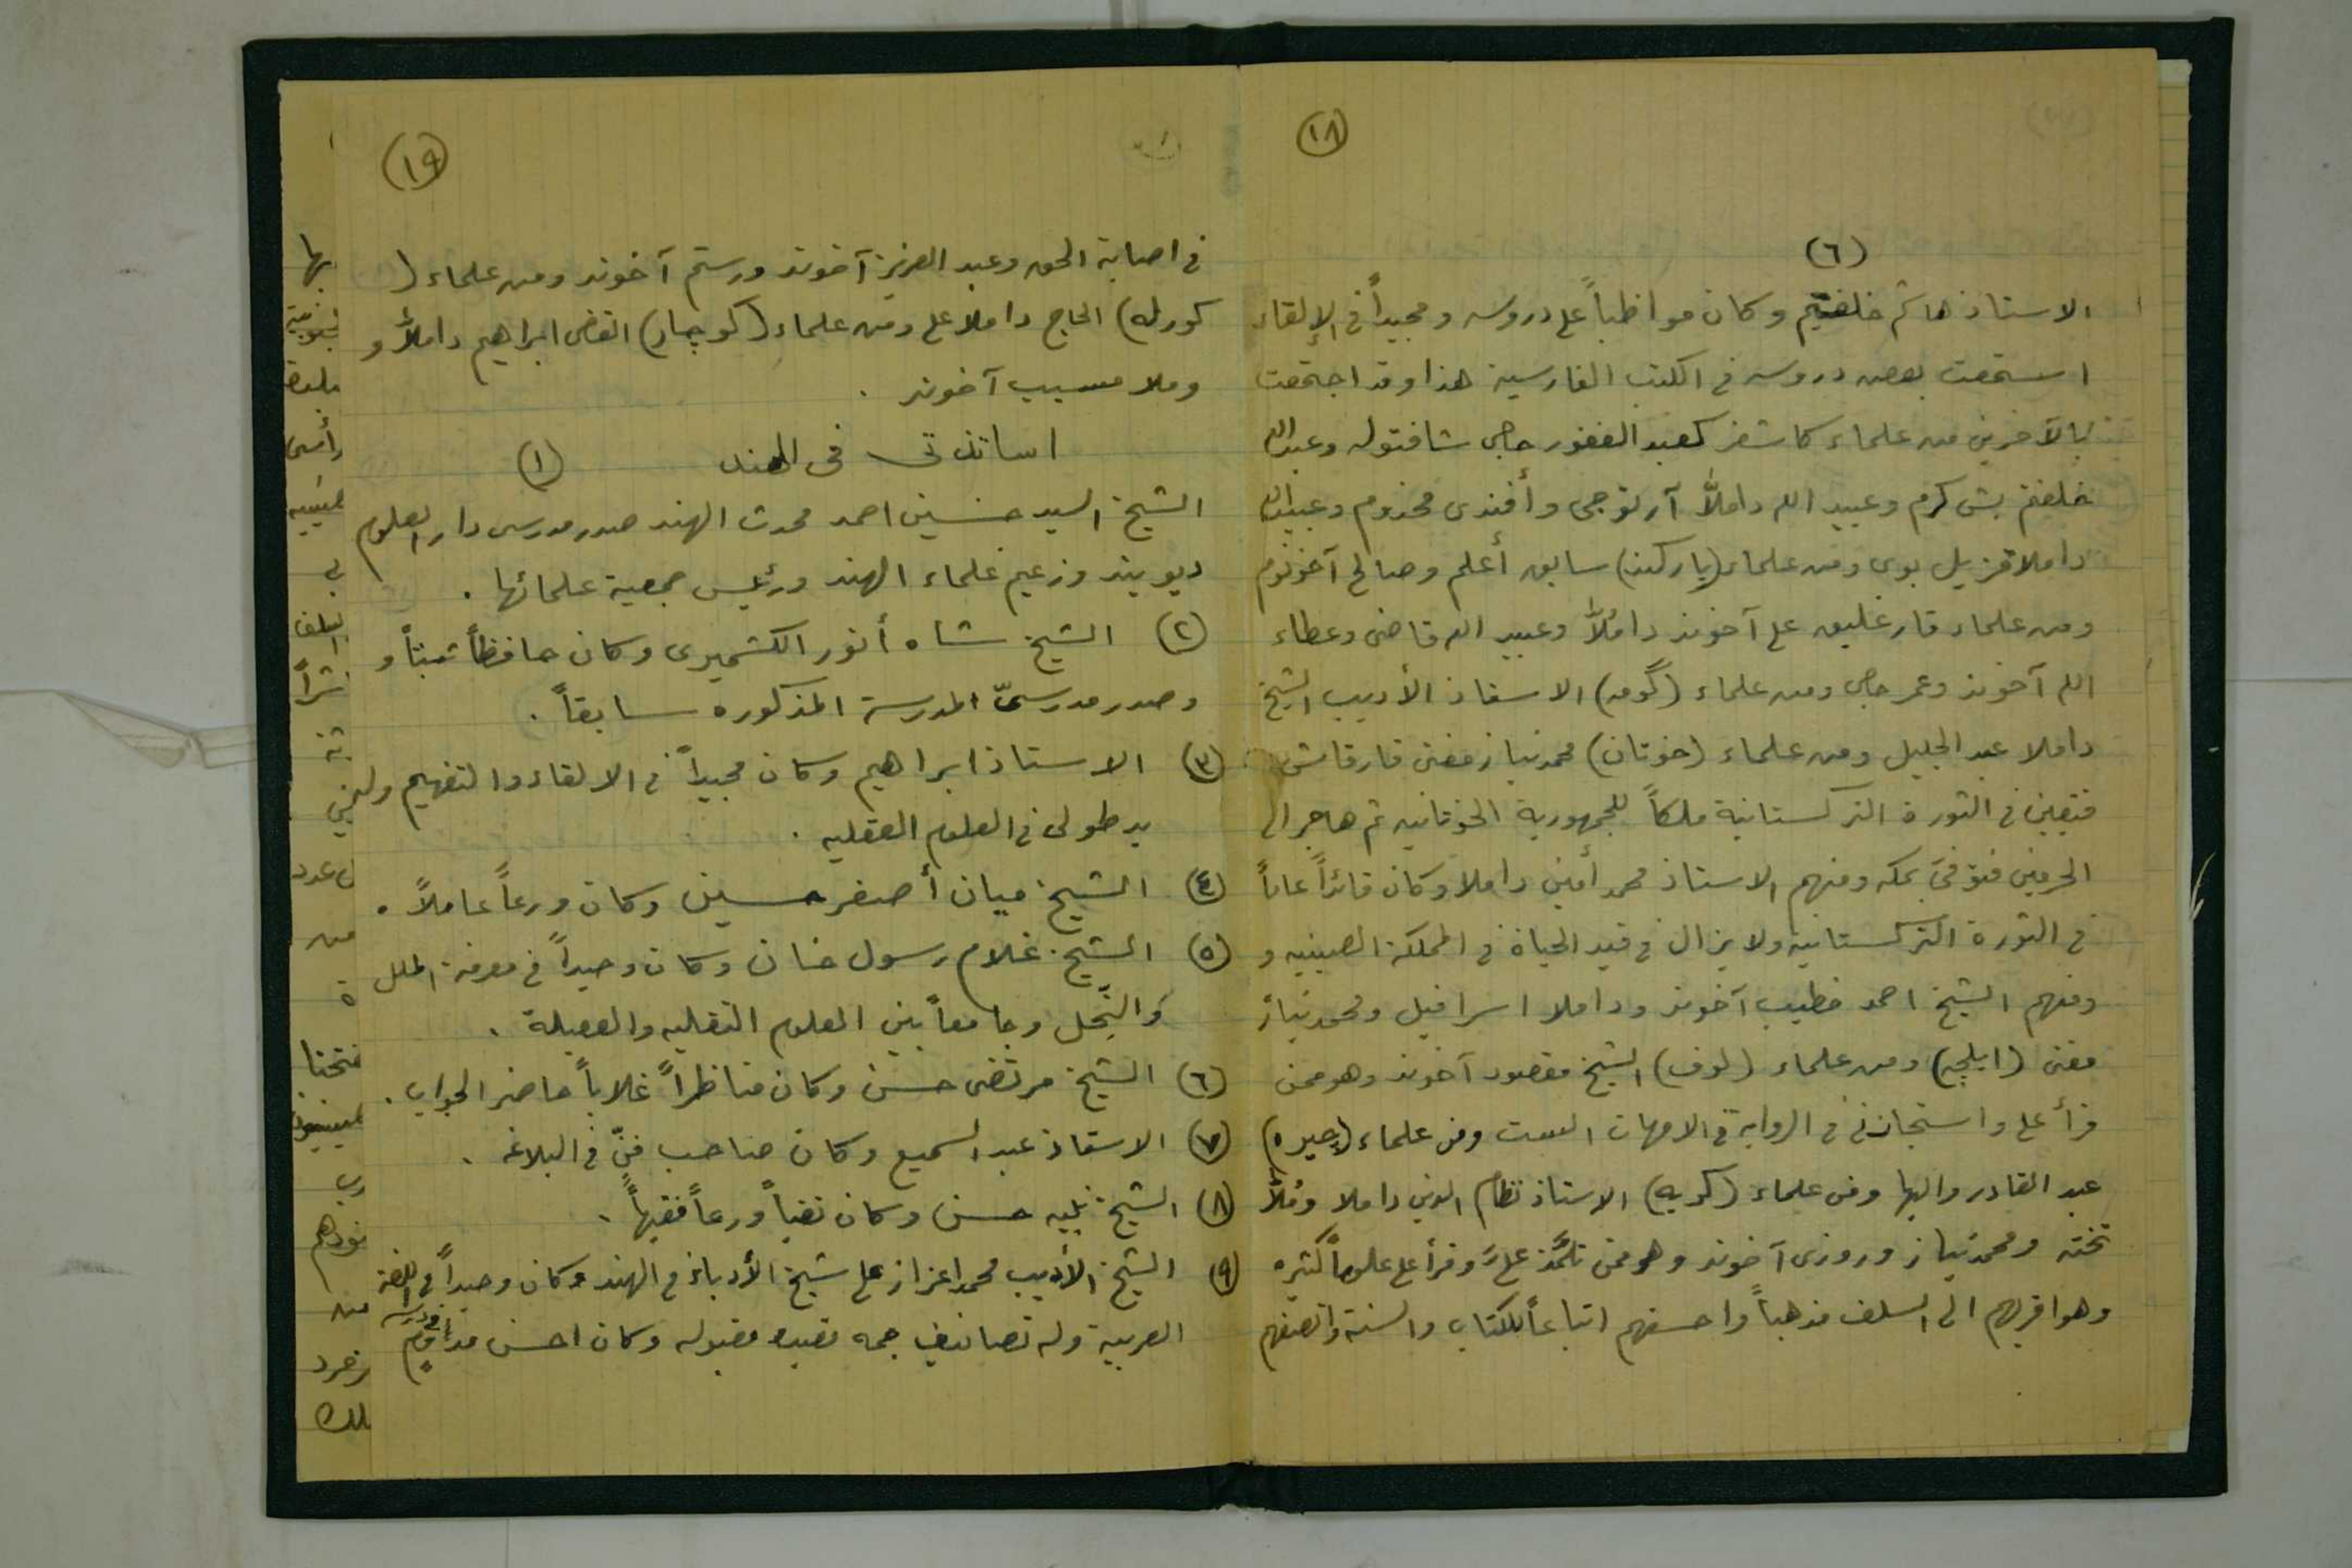 (١٨)
(٦)
الاستاذ هاشم خلفتيم وكان مواظباً على دروسه ومجيداً في الإلقاء
استمعت بعض دروسه في الكتب الفارسية هذا وقد اجتمعت
بالآخرين من علماء كاشغر كعبد الغفور حاجى شافتوله وعبدالله
خلفتم بش كرم وعبيد الله داملاّ آرتوجى وأفندى مخدوم وعبيدالله
داملا قزيل بوى ومن علماء (ياركند) سابق أعلم وصالح آخونوم
ومن علماء قارغليق على آخوند داملاّ وعبيد الله قاضى وعطاء
الله آخوند وعمر حاجى ومن علماء (گومه) الاستاذ الأديب الشيخ
داملا عبد الجليل ومن علماء (خوتان) محمد نياز مفتى قارقاش
فتعين في الثورة التركستانية ملكاً للجمهورية الخوتانيه ثم هاجر الى
الحرمين فتوفىَ بمكه ومنهم الاستاذ محمد أمين داملا وكان قائداً عاماً
في الثورة التركستانية ولا يزال في قيد الحياة في المملكة الصينيه و
ومنهم الشيخ احمد خطيب آخوند وداملا اسرافيل ومحمد نياز
مفتى (ايلچي) ومن علماء (لوف) الشيخ مقصود آخوند وهو ممن
قرأ علي واستجازني في الرواية في الامهات الست ومن علماء (چيره)
عبد القادر واليها ومن علماء (كريه) الاستاذ نظام الدين داملا ومُلاّ
تخته ومحمد نياز وروزى آخوند وهو ممن تلمَّذ عليَّ وقرأ علي علوماً كثيره
وهو اقربهم الى السلف مذهباً واحسنهم اتباعاً للكتاب والسنة وانصفهم
(١٩)
في اصابة الحق وعبد العزيز آخوند ورستم آخوند ومن علماء (
كورله) الحاج داملا علي ومن علماء (كوچار) القاضى ابراهيم داملاّ و
وملا مسيب آخوند .
اساتذتى فى الهند (١)
الشيخ السيد حسين احمد محدث الهند صدر مدرسى دار العلوم
ديوبند وزعيم علماء الهند ورئيس جمعية علمائها .
(٢) الشيخ شاه أنور الكشميرى وكان حافظاً ثبتاً و
وصدر مدرسىّ المدرسة المذكوره سابقاً .
(٣) الاستاذ ابراهيم وكان مجيداً في الالقاء والتفهيم وله
يد طولى في العلوم العقليه .
(٤) الشيخ ميان أصغر حسين وكان ورعاً عاملاً .
(٥) الشيخ غلام رسول خان وكان وحيداً في معرفة الملل
والنِّحل وجامعاً بين العلوم النقليه والعقيلة .
(٦) الشيخ مرتضى حسن وكان مناظراً غلاباً حاضر الجواب .
(٧) الاستاذ عبد السميع وكان صاحب فنّ في البلاغه .
(٨) الشيخ نبيه حسن وكان تقياً ورعاً فقيهاً .
(٩) الشيخ الأديب محمد اعزاز علي شيخ الأدباء في الهند وكان وحيداً في اللغة
العربية وله تصانيف جمه مقبوله وكان احسن
بها
رأسى
عدد
من
ة
من